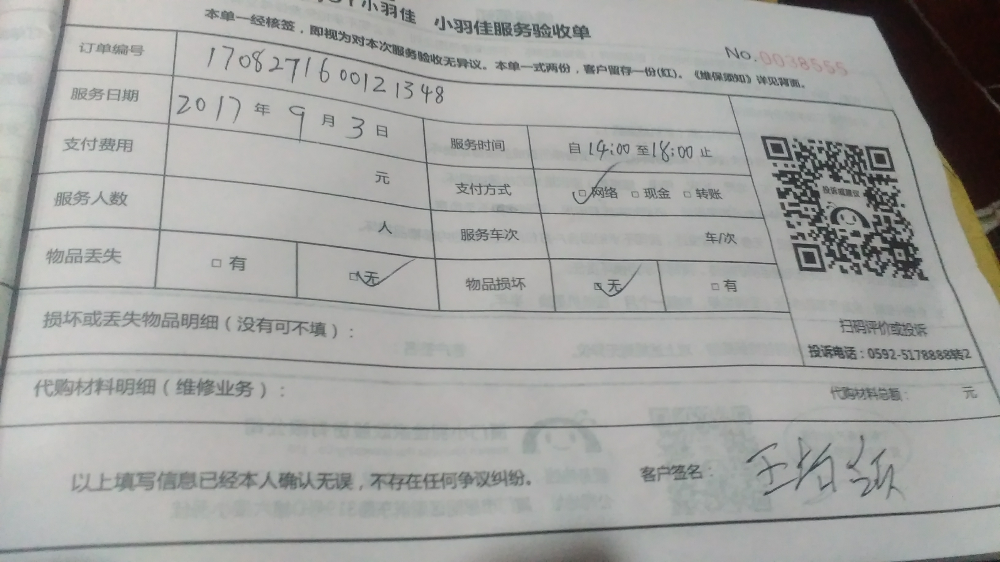 小羽佳 小羽佳服务验收单
本单一经核签，即视为对本次服务验收无异议。本单一式两份，客户留存一份(红)。《维保须知》详见背面。
No.0038555
订单编号 1708271600121348
服务日期 2017年9月3日 服务时间 自14:00至18:00止
支付费用 元 支付方式 网络 现金 转账
服务人数 人 服务车次 车/次
物品丢失 有 无 物品损坏 无 有
投诉或建议
扫码评价或投诉
投诉电话：0592-5178888转2
损坏或丢失物品明细（没有可不填）：
代购材料明细（维修业务）： 代购材料总额： 元
以上填写信息已经本人确认无误，不存在任何争议纠纷。 客户签名：